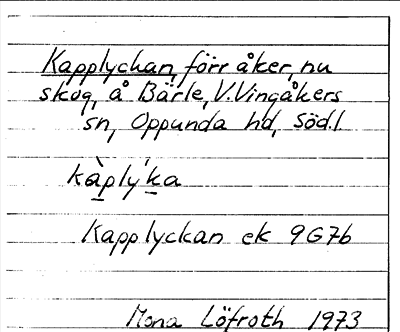 Kapplyckan, förr åker, nu
skog, å Bärle, V. Vingåkers
sn, Oppunda hd, Söd.l
kàplýka
Kapplyckan ek 9G7b
Mona Löfroth 1973